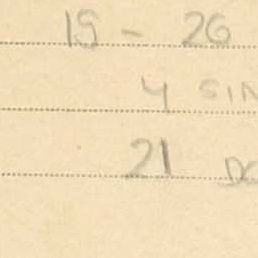 19 - 26
4 SIN
21 DO